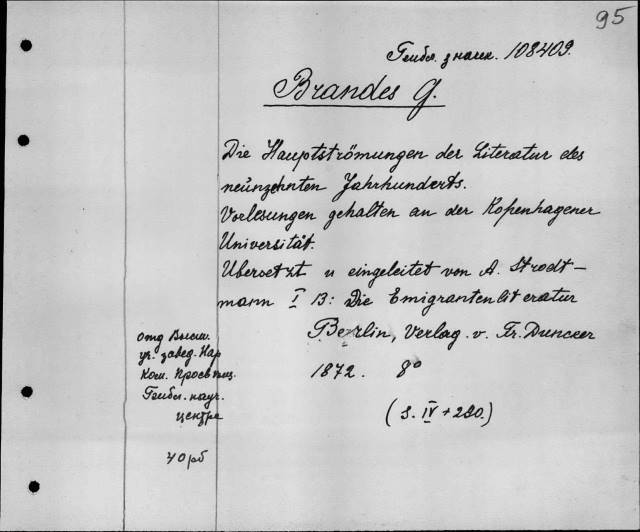 95
108409.
Brandes G.
Die Hauptströmungen der Literatur des
neunzehnten Jahrhunderts.
Vorlesungen gehalten an der Kopenhagener
Universität.
Übersetzt u eingeleitet von A. Strodt-
mann I B: Die Emigrantenliteratur
Berlin, Verlag. v. Fr. Duncker
1872. 8°
(S. IV + 280.)
отд Высш.
уч. завед. Нар
Ком. Просвещ.
науч.
центра
40 рб